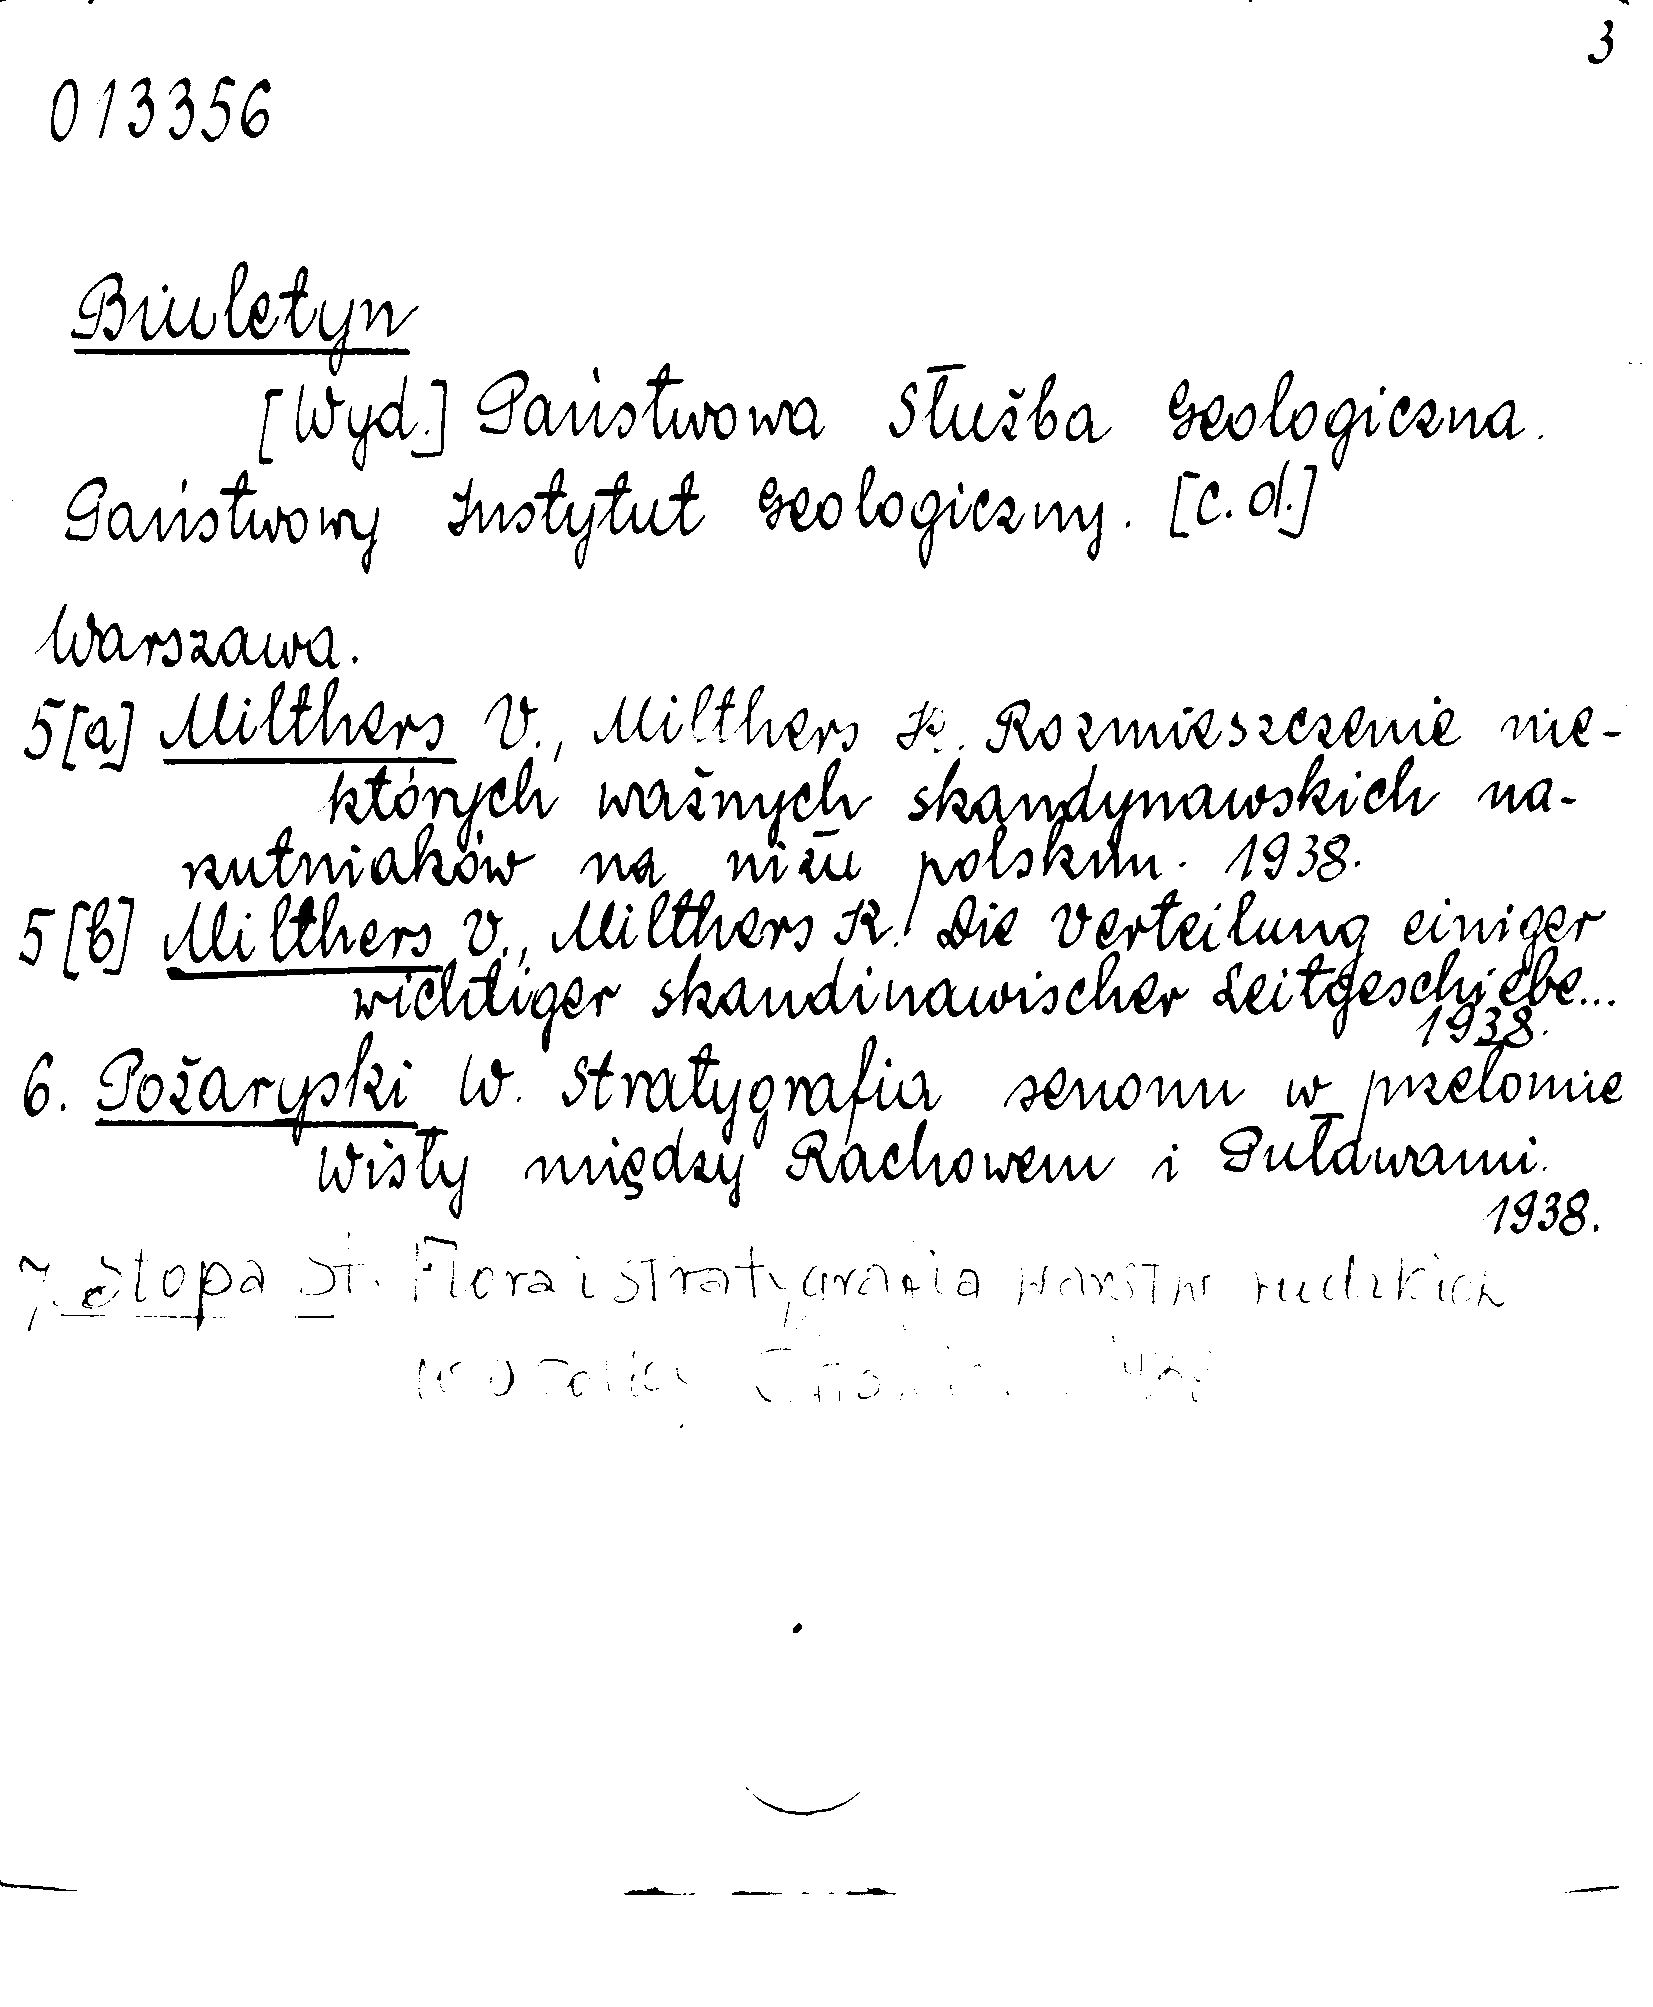 3
013356
Biuletyn
[Wyd.] Państwowa Służba Geologiczna.
Państwowy Instytut Geologiczny. [c.d.]
Warszawa.
5[a] Milthers V., Milthers K. Rozmieszczenie nie-
których ważnych skandynawskich na-
rzutniaków na niżu polskim. 1938.
5[b] Milthers V., Milthers K. Die Verteilung einiger
wichtiger skandinawischer Leitgeschiebe...
1938.
6. Pożaryski W. Stratygrafia senonu w przełomie
Wisły między Rachowem i Puławami.
1938.
7. Stopa St. Flora i stratygrafia warstw rudzkich
w okolicy